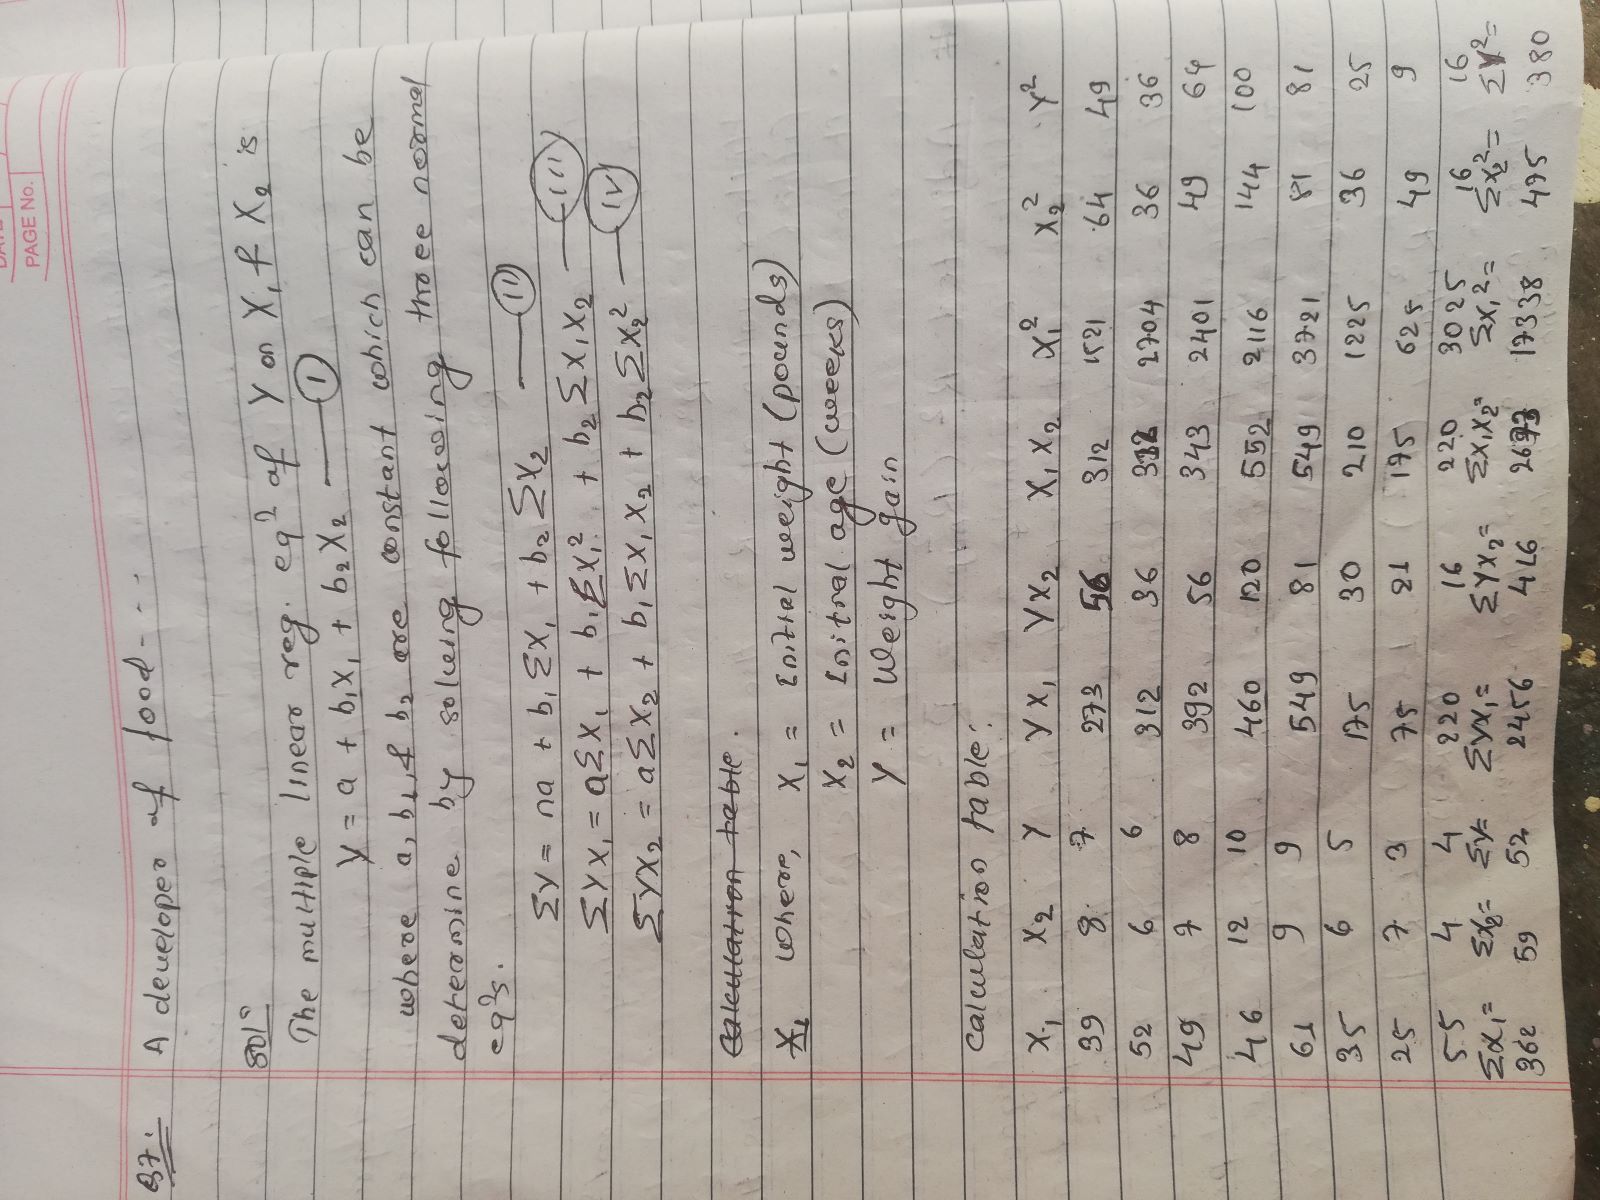 DATE
PAGE No.
Q7. A developer of food - - -
Solⁿ
The multiple linear reg. eqⁿ of Y on X₁ & X₂ is
Y = a + b₁X₁ + b₂X₂ —— (I)
where a, b₁, & b₂ are constant which can be
determine by solving following three normal
eqⁿs.
ΣY = na + b₁ΣX₁ + b₂ΣX₂ —— (II)
ΣYX₁ = aΣX₁ + b₁ΣX₁² + b₂ΣX₁X₂ —— (III)
ΣYX₂ = aΣX₂ + b₁ΣX₁X₂ + b₂ΣX₂² —— (IV)
Calculation table.
X₁ where, X₁ = Initial weight (pounds)
X₂ = Initial age (weeks)
Y = Weight gain
Calculation table:
X₁ X₂ Y YX₁ YX₂ X₁X₂ X₁² X₂² Y²
39 8 7 273 56 312 1521 64 49
52 6 6 312 36 312 2704 36 36
49 7 8 392 56 343 2401 49 64
46 12 10 460 120 552 2116 144 100
61 9 9 549 81 549 3721 81 81
35 6 5 175 30 210 1225 36 25
25 7 3 75 21 175 625 49 9
55 4 4 220 16 220 3025 16 16
ΣX₁= ΣX₂= ΣY= ΣYX₁= ΣYX₂= ΣX₁X₂= ΣX₁²= ΣX₂²= ΣY²=
362 59 52 2456 416 2673 17338 475 380